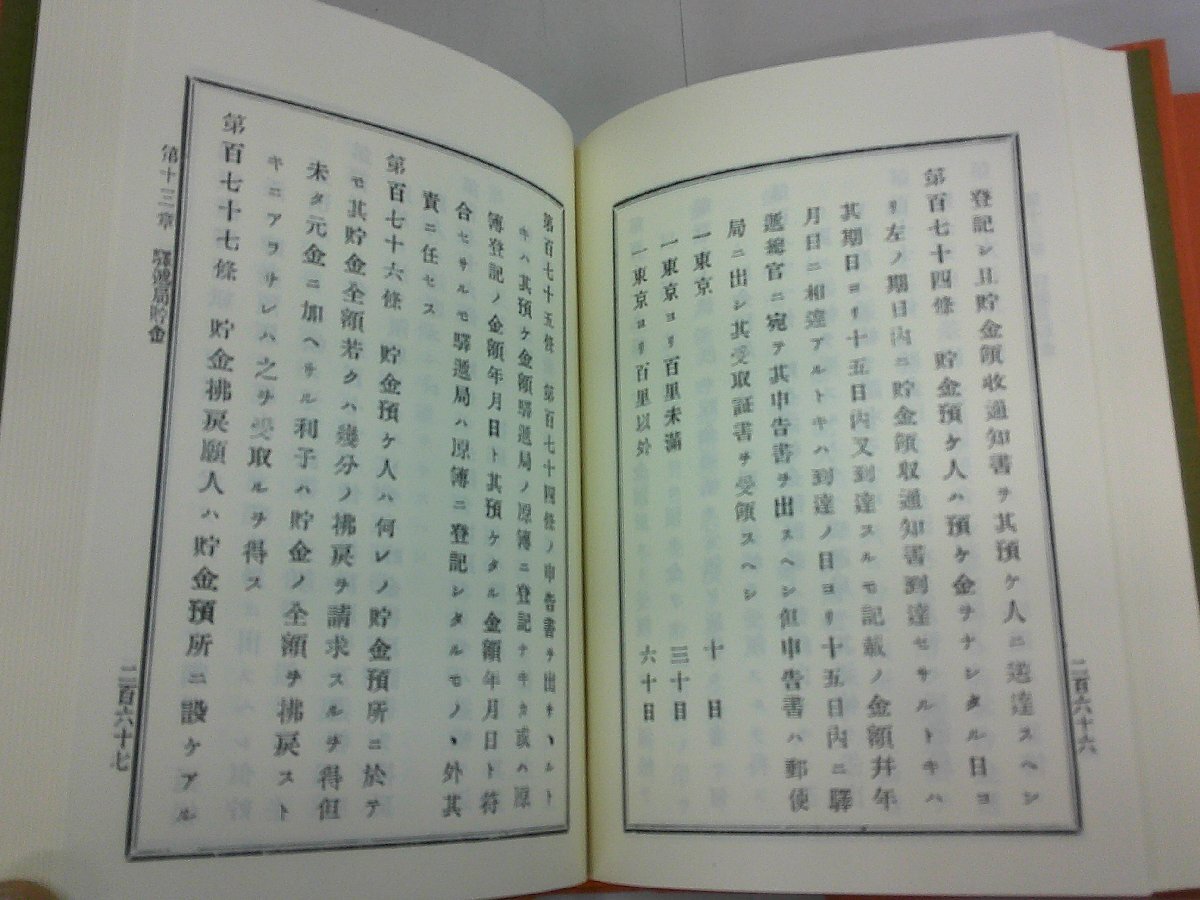 登記シ且貯金領收通知書ヲ其預ケ人ニ送達スヘシ
第百七十四條 貯金預ケ人ハ預ケ金ヲナシタル日ヨ
リ左ノ期日内ニ貯金領収通知書到達セサルトキハ
其期日ヨリ十五日内又到達スルモ記載ノ金額并年
月日ニ相違アルトキハ到達ノ日ヨリ十五日内ニ驛
遞總官ニ宛テ其申告書ヲ出スヘシ但申告書ハ郵便
局ニ出シ其受取証書ヲ受領スヘシ
一東京 十日
一東京ヨリ百里未滿 三十日
一東京ヨリ百里以外 六十日
二百六十六
第百七十五條 第百七十四條ノ申告書ヲ出サヽルト
キハ其預ケ金額驛遞局ノ原簿ニ登記ナキカ或ハ原
簿登記ノ金額年月日ト其預ケタル金額年月日ト符
合セサルモ驛遞局ハ原簿ニ登記シタルモノヽ外其
責ニ任セス
第百七十六條 貯金預ケ人ハ何レノ貯金預所ニ於テ
モ其貯金全額若クハ幾分ノ拂戻ヲ請求スルヲ得但
未タ元金ニ加ヘサル利子ハ貯金ノ全額ヲ拂戻スト
キニアラサレハ之ヲ受取ルヲ得ス
第百七十七條 貯金拂戻願人ハ貯金預所ニ設ケアル
第十三章 驛遞局貯金
二百六十七